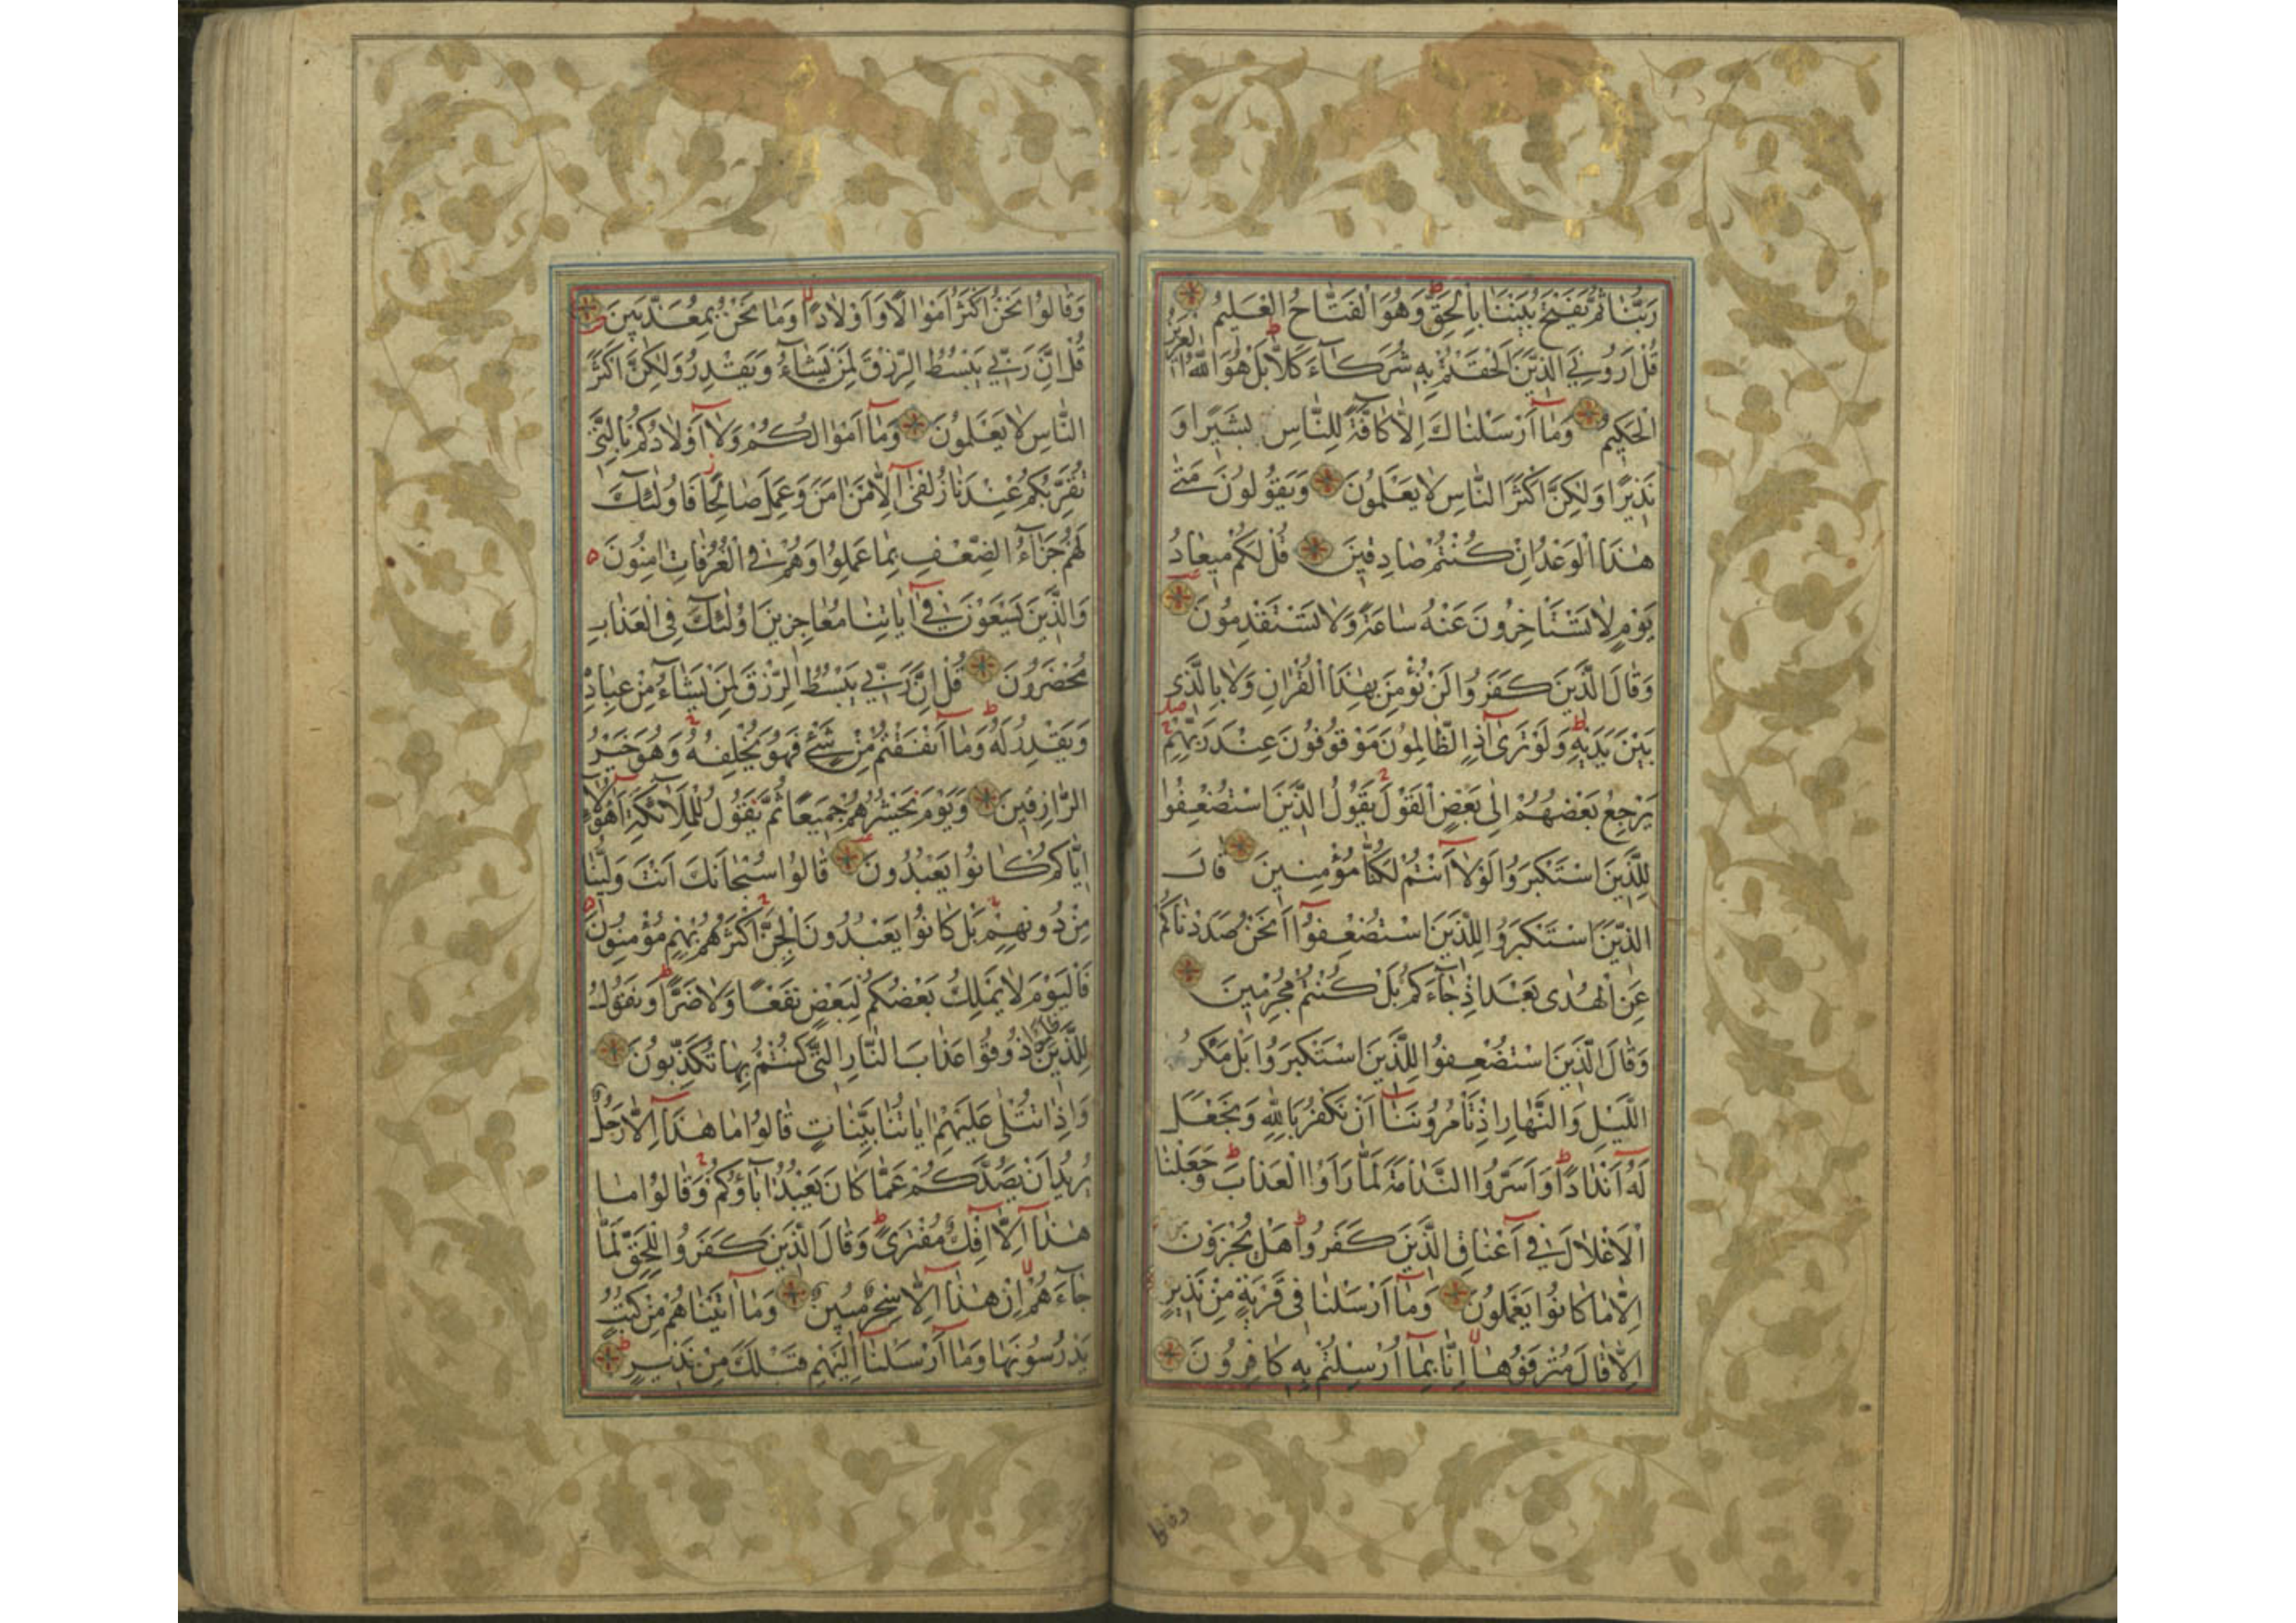 رَبُّنَا ثُمَّ يَفْتَحُ بَيْنَنَا بِالْحَقِّ وَهُوَ الْفَتَّاحُ الْعَلِيمُ
قُلْ اَرُونِيَ الَّذِينَ اَلْحَقْتُمْ بِهِ شُرَكَاءَ كَلَّا بَلْ هُوَ اللّٰهُ الْعَزِيزُ
الْحَكِيمُ وَمَا اَرْسَلْنَاكَ اِلَّا كَافَّةً لِلنَّاسِ بَشِيرًا وَ
نَذِيرًا وَلٰكِنَّ اَكْثَرَ النَّاسِ لَا يَعْلَمُونَ وَيَقُولُونَ مَتٰى
هٰذَا الْوَعْدُ اِنْ كُنْتُمْ صَادِقِينَ قُلْ لَكُمْ مِيعَادُ
يَوْمٍ لَا تَسْتَأْخِرُونَ عَنْهُ سَاعَةً وَلَا تَسْتَقْدِمُونَ
وَقَالَ الَّذِينَ كَفَرُوا لَنْ نُؤْمِنَ بِهٰذَا الْقُرْاٰنِ وَلَا بِالَّذِي
بَيْنَ يَدَيْهِ وَلَوْ تَرٰى اِذِ الظَّالِمُونَ مَوْقُوفُونَ عِنْدَ رَبِّهِمْ
يَرْجِعُ بَعْضُهُمْ اِلٰى بَعْضٍ الْقَوْلَ يَقُولُ الَّذِينَ اسْتُضْعِفُوا
لِلَّذِينَ اسْتَكْبَرُوا لَوْلَا اَنْتُمْ لَكُنَّا مُؤْمِنِينَ قَالَ
الَّذِينَ اسْتَكْبَرُوا لِلَّذِينَ اسْتُضْعِفُوا اَنَحْنُ صَدَدْنَاكُمْ
عَنِ الْهُدٰى بَعْدَ اِذْ جَاءَكُمْ بَلْ كُنْتُمْ مُجْرِمِينَ
وَقَالَ الَّذِينَ اسْتُضْعِفُوا لِلَّذِينَ اسْتَكْبَرُوا بَلْ مَكْرُ
اللَّيْلِ وَالنَّهَارِ اِذْ تَأْمُرُونَنَا اَنْ نَكْفُرَ بِاللّٰهِ وَنَجْعَلَ
لَهُ اَنْدَادًا وَاَسَرُّوا النَّدَامَةَ لَمَّا رَاَوُا الْعَذَابَ وَجَعَلْنَا
الْاَغْلَالَ فِي اَعْنَاقِ الَّذِينَ كَفَرُوا هَلْ يُجْزَوْنَ
اِلَّا مَا كَانُوا يَعْمَلُونَ وَمَا اَرْسَلْنَا فِي قَرْيَةٍ مِنْ نَذِيرٍ
اِلَّا قَالَ مُتْرَفُوهَا اِنَّا بِمَا اُرْسِلْتُمْ بِهِ كَافِرُونَ
وقالوا
وَقَالُوا نَحْنُ اَكْثَرُ اَمْوَالًا وَاَوْلَادًا وَمَا نَحْنُ بِمُعَذَّبِينَ
قُلْ اِنَّ رَبِّي يَبْسُطُ الرِّزْقَ لِمَنْ يَشَاءُ وَيَقْدِرُ وَلٰكِنَّ اَكْثَرَ
النَّاسِ لَا يَعْلَمُونَ وَمَا اَمْوَالُكُمْ وَلَا اَوْلَادُكُمْ بِالَّتِي
تُقَرِّبُكُمْ عِنْدَنَا زُلْفٰى اِلَّا مَنْ اٰمَنَ وَعَمِلَ صَالِحًا فَاُولٰئِكَ
لَهُمْ جَزَاءُ الضِّعْفِ بِمَا عَمِلُوا وَهُمْ فِي الْغُرُفَاتِ اٰمِنُونَ
وَالَّذِينَ يَسْعَوْنَ فِي اٰيَاتِنَا مُعَاجِزِينَ اُولٰئِكَ فِي الْعَذَابِ
مُحْضَرُونَ قُلْ اِنَّ رَبِّي يَبْسُطُ الرِّزْقَ لِمَنْ يَشَاءُ مِنْ عِبَادِهِ
وَيَقْدِرُ لَهُ وَمَا اَنْفَقْتُمْ مِنْ شَيْءٍ فَهُوَ يُخْلِفُهُ وَهُوَ خَيْرُ
الرَّازِقِينَ وَيَوْمَ نَحْشُرُهُمْ جَمِيعًا ثُمَّ نَقُولُ لِلْمَلَائِكَةِ اَهٰؤُلَاءِ
اِيَّاكُمْ كَانُوا يَعْبُدُونَ قَالُوا سُبْحَانَكَ اَنْتَ وَلِيُّنَا
مِنْ دُونِهِمْ بَلْ كَانُوا يَعْبُدُونَ الْجِنَّ اَكْثَرُهُمْ بِهِمْ مُؤْمِنُونَ
فَالْيَوْمَ لَا يَمْلِكُ بَعْضُكُمْ لِبَعْضٍ نَفْعًا وَلَا ضَرًّا وَنَقُولُ
لِلَّذِينَ ظَلَمُوا ذُوقُوا عَذَابَ النَّارِ الَّتِي كُنْتُمْ بِهَا تُكَذِّبُونَ
وَاِذَا تُتْلٰى عَلَيْهِمْ اٰيَاتُنَا بَيِّنَاتٍ قَالُوا مَا هٰذَا اِلَّا رَجُلٌ
يُرِيدُ اَنْ يَصُدَّكُمْ عَمَّا كَانَ يَعْبُدُ اٰبَاؤُكُمْ وَقَالُوا مَا
هٰذَا اِلَّا اِفْكٌ مُفْتَرًى وَقَالَ الَّذِينَ كَفَرُوا لِلْحَقِّ لَمَّا
جَاءَهُمْ اِنْ هٰذَا اِلَّا سِحْرٌ مُبِينٌ وَمَا اٰتَيْنَاهُمْ مِنْ كُتُبٍ
يَدْرُسُونَهَا وَمَا اَرْسَلْنَا اِلَيْهِمْ قَبْلَكَ مِنْ نَذِيرٍ